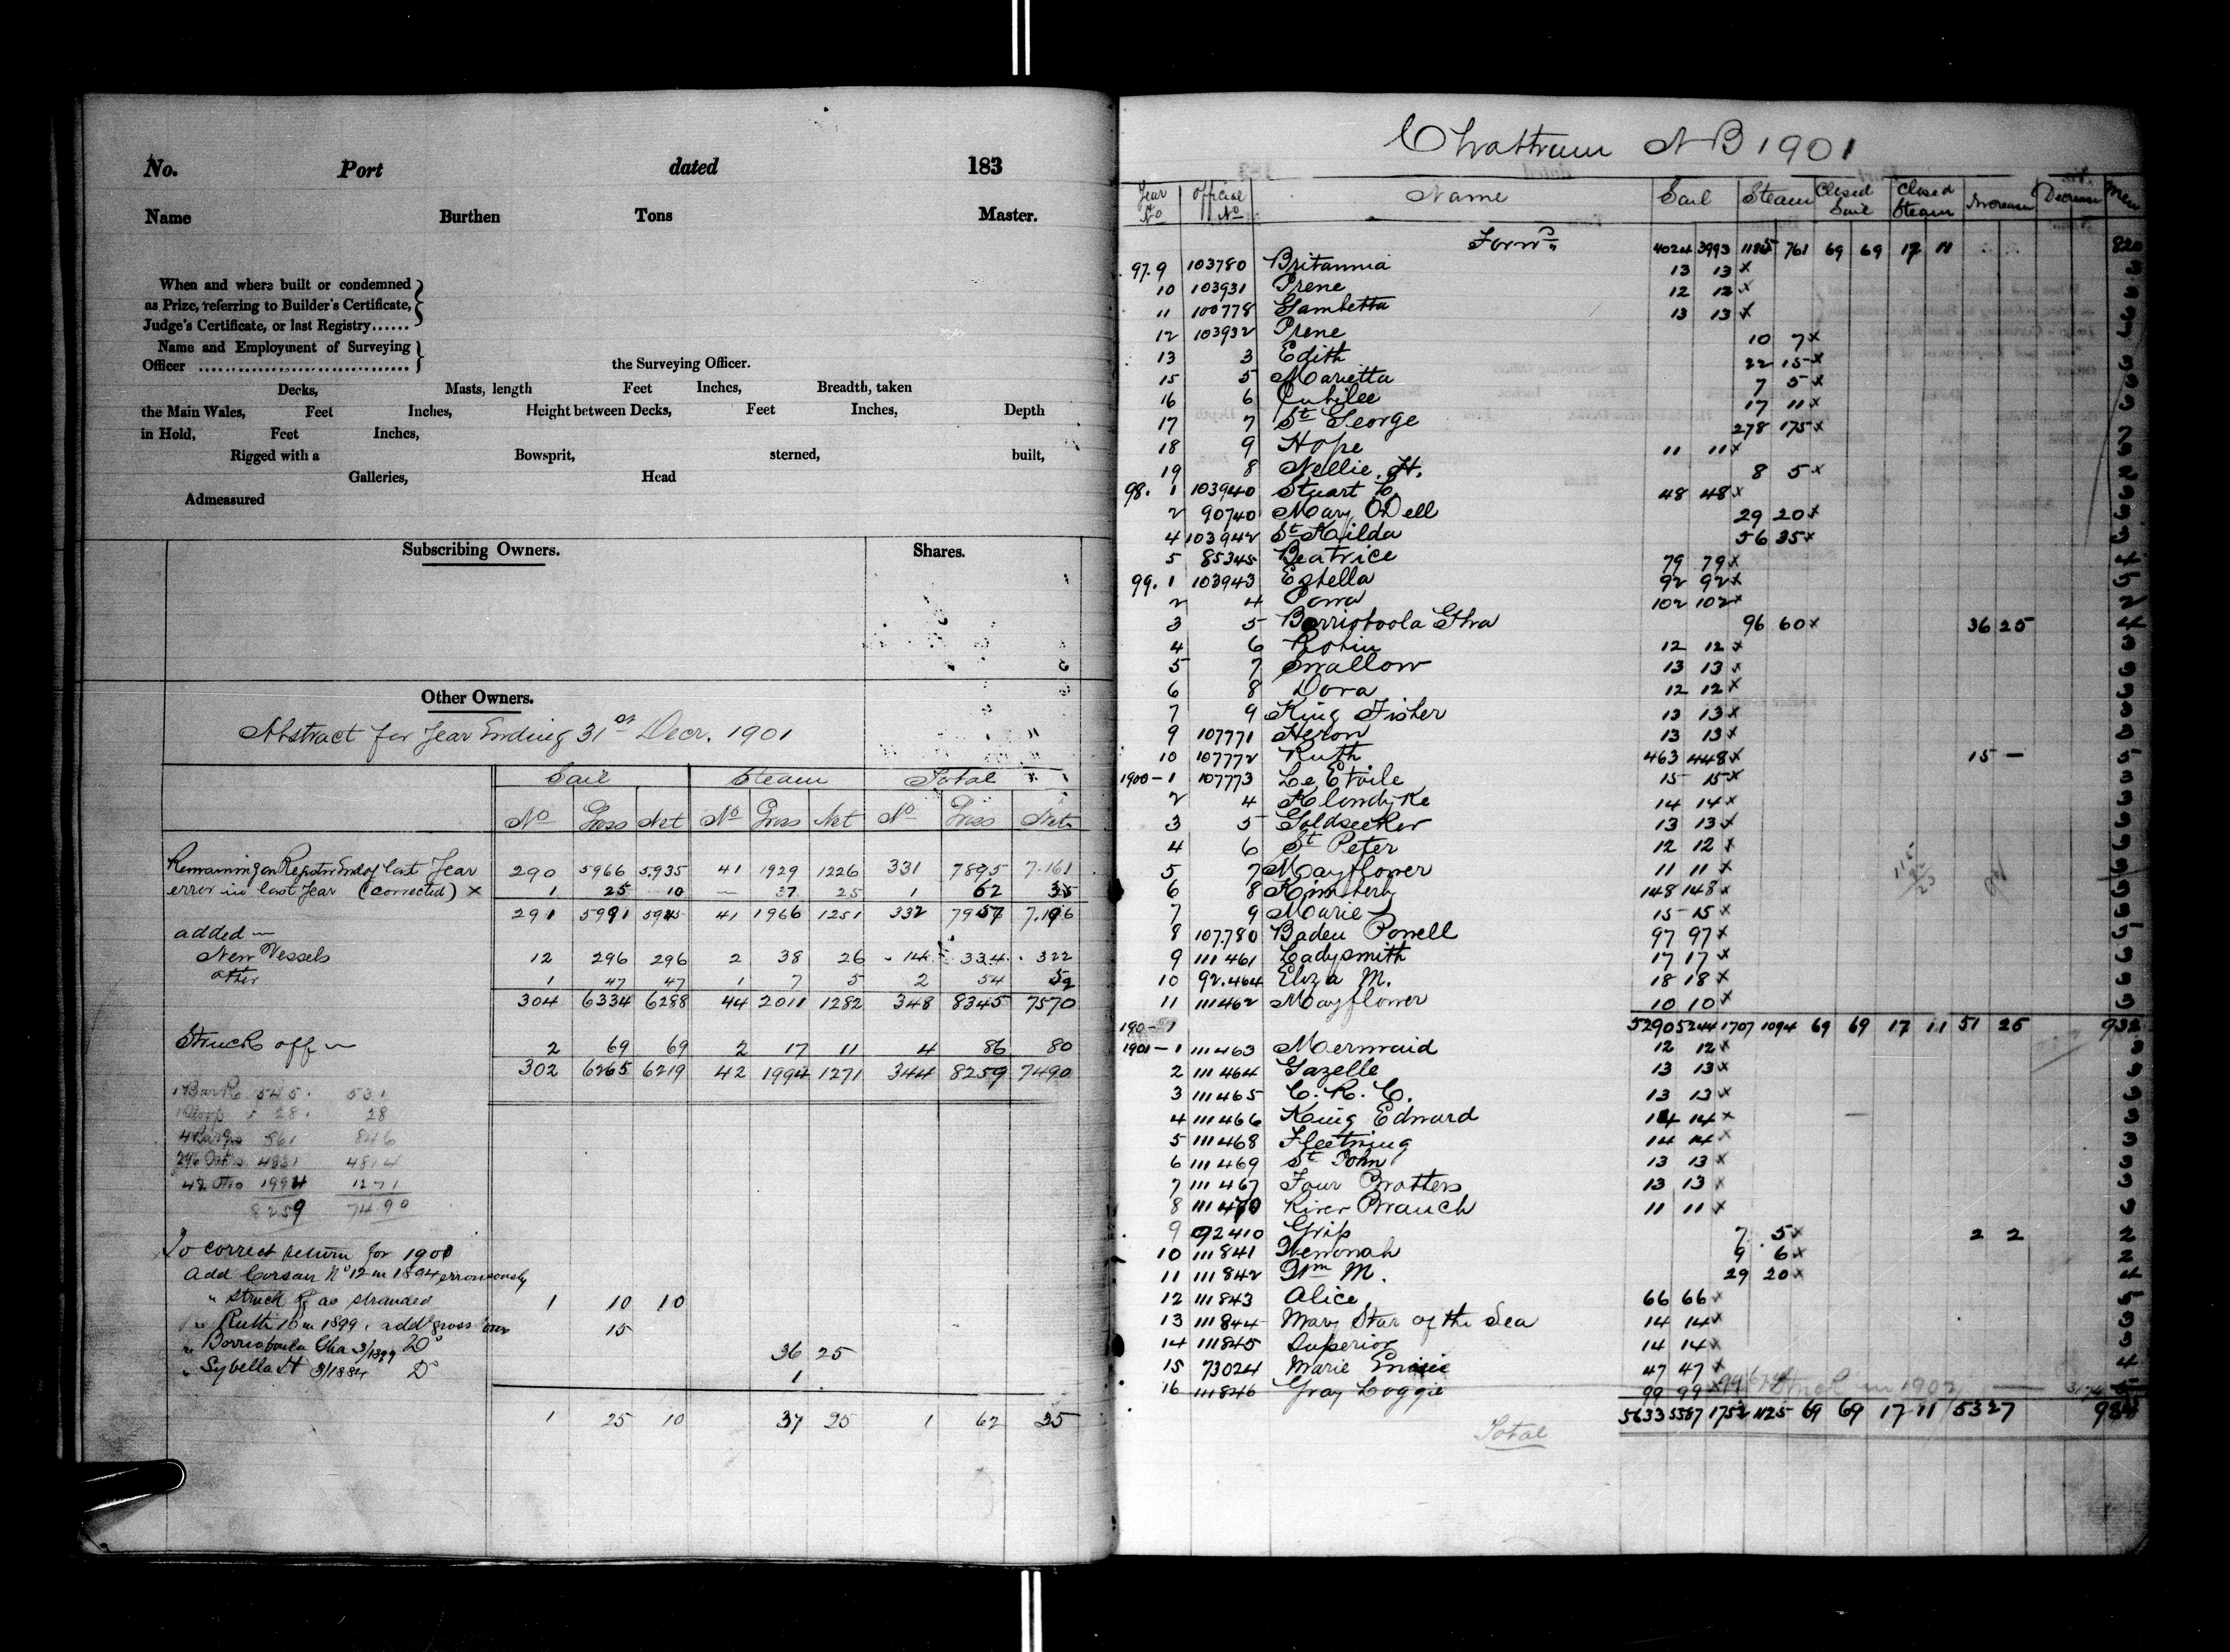 No. Port dated 183
Name Burthen Tons Master.
When and where built or condemned
as Prize, referring to Builder's Certificate,
Judge's Certificate, or last Registry......
Name and Employment of Surveying
Officer ................................ the Surveying Officer.
Decks, Masts, length Feet Inches, Breadth, taken
the Main Wales, Feet Inches, Height between Decks, Feet Inches, Depth
in Hold, Feet Inches,
Rigged with a Bowsprit, sterned, built,
Galleries, Head
Admeasured
Subscribing Owners. Shares.
Other Owners.
Abstract for Year Ending 31st Decr. 1901
Sail Steam Total
No Gross Net No Gross Net No Gross Net
Remaining on Register End of last Year 290 5966 5935 41 1929 1226 331 7895 7.161
error in last Year (corrected) x 1 25 10 — 37 25 1 62 35
291 5991 5945 41 1966 1251 332 7957 7.196
added —
New Vessels 12 296 296 2 38 26 14 334 322
other 1 47 47 1 7 5 2 54 52
304 6334 6288 44 2011 1282 348 8345 7570
Struck off — 2 69 69 2 17 11 4 86 80
302 6265 6219 42 1994 1271 344 8259 7490
1 Bark 545 531
28 28
861 846
1994 1271
8259 7490
To correct return for 1900
Add Corsair No 12 in 1894 erroneously
" struck off as stranded 1 10 10
" Ruth 10 in 1899. add gross 15
" Borrioboola Gha 3/1899 Do 36 25
" Sybella H 3/1884 Do 1
1 25 10 37 25 1 62 35
Chatham N B 1901
Year No Official No Name Sail Steam Closed Sail Closed Steam Increase Decrease Men
Forwd 4024 3993 1185 761 69 69 17 11 820
97. 9 103780 Britannia 13 13 x 3
10 103931 Irene 12 12 x 3
11 100778 Gambetta 13 13 x 3
12 103932 Irene 10 7 x
13 3 Edith 22 15 x 3
15 5 Marietta 7 5 x 3
16 6 Jubilee 17 11 x 3
17 7 St George 278 175 x 7
18 9 Hope 11 11 x 3
19 8 Nellie H. 8 5 x 2
98. 1 103940 Stuart 48 48 x 3
2 90740 Mary ODell 29 20 x 3
4 103942 St Kilda 56 35 x 3
5 85345 Beatrice 79 79 x 4
99. 1 103943 Estella 92 92 x
2 4 102 102 x
3 5 Borrioboola Gha 96 60 x 36 25 4
4 6 Robin 12 12 x 3
5 7 Swallow 13 13 x 3
6 8 Dora 12 12 x 3
7 9 King Fisher 13 13 x 3
9 107771 Heron 13 13 x 3
10 107772 Ruth 463 448 x 15 — 5
1900 — 1 107773 Le Etoile 15 15 x 3
2 4 Klondyke 14 14 x 3
3 5 Goldseeker 13 13 x 3
4 6 St Peter 12 12 x 3
5 7 Mayflower 11 11 x 3
6 8 Kimberly 148 148 x
7 9 Marie 15 15 x 3
8 107.780 Baden Powell 97 97 x 5
9 111461 Ladysmith 17 17 x 3
10 92.464 Eliza M. 18 18 x 3
11 111462 Mayflower 10 10 x 3
5290 5244 1707 1094 69 69 17 11 51 25 932
1901 — 1 111463 Mermaid 12 12 x 3
2 111464 Gazelle 13 13 x 3
3 111465 C. R. C. 13 13 x 3
4 111466 King Edward 14 14 x 3
5 111468 Fleetwing 14 14 x 3
6 111469 St John 13 13 x 3
7 111467 Four Brothers 13 13 x 3
8 111470 River Branch 11 11 x 3
9 92410 Grip 7 5 x 2 2 2
10 111841 Wenonah 9 6 x 2
11 111842 Wm M. 29 20 x 4
12 111843 Alice 66 66 x 5
13 111844 Mary Star of the Sea 14 14 x 3
14 111845 Superior 14 14 x 3
15 73024 Marie 47 47 x 4
16 111846 Gray Loggie 99 99 x Struck in 1902
5633 5587 1752 1125 69 69 17 11 53 27
Total